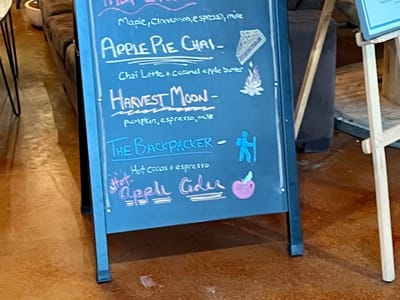 Maple, cinnamon, espresso, milk
APPLE PIE CHAI -
Chai Latte + caramel apple butter
HARVEST MOON -
pumpkin, espresso, milk
THE BACKPACKER -
Hot cocoa + espresso
Hot
Apple Cider